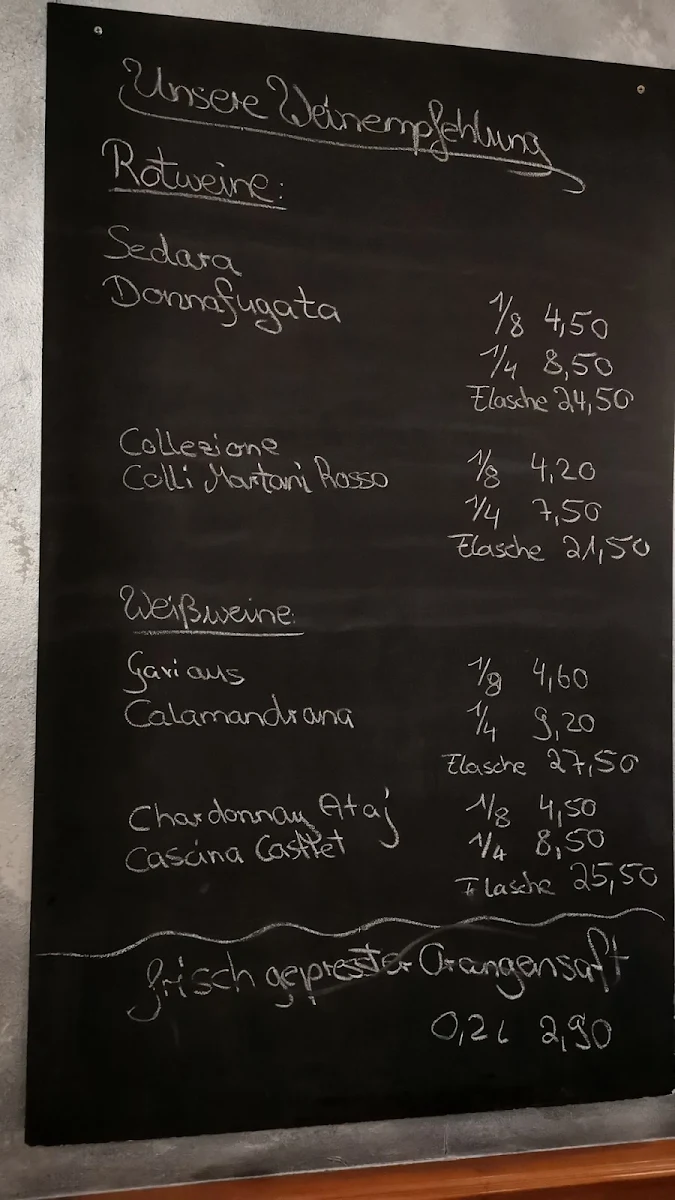 Unsere Weinempfehlung
Rotweine:
Sedara
Donnafugata 1/8 4,50
1/4 8,50
Flasche 24,50
Collezione
Colli Martani Rosso 1/8 4,20
1/4 7,50
Flasche 21,50
Weißweine:
Gavi aus 1/8 4,60
Calamandrana 1/4 9,20
Flasche 27,50
Chardonnay Ataj 1/8 4,50
Cascina Castlet 1/4 8,50
Flasche 25,50
frisch gepresster Orangensaft
0,2l 2,90